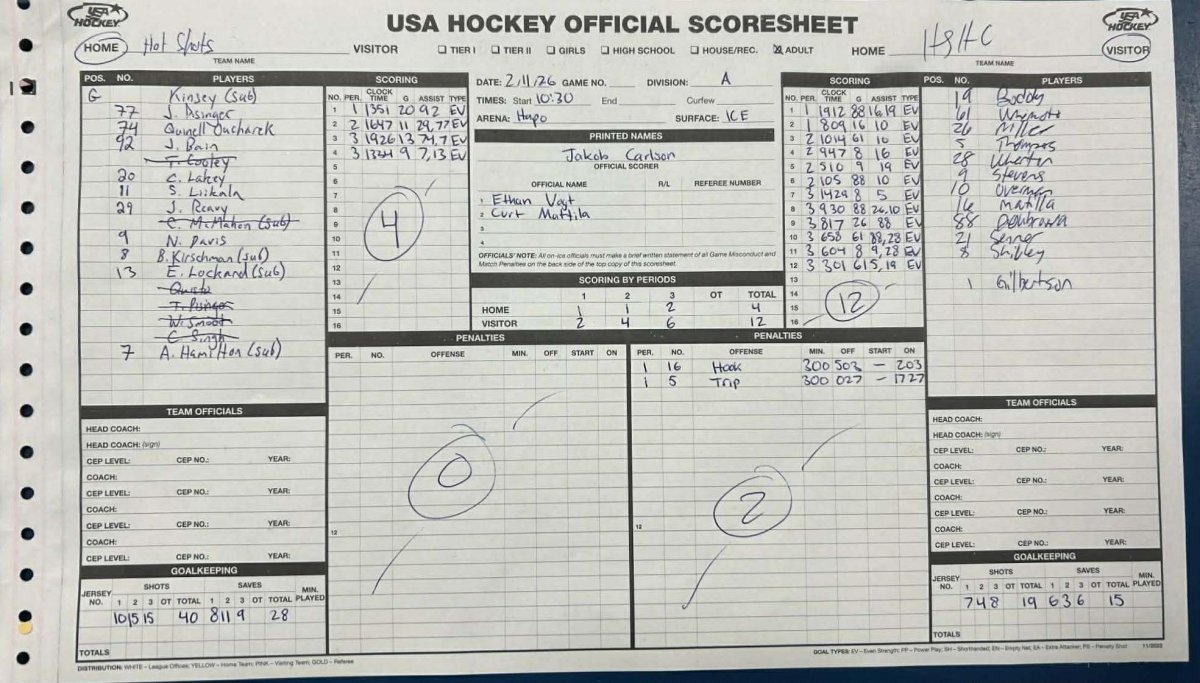 USA HOCKEY
USA HOCKEY OFFICIAL SCORESHEET
USA HOCKEY
HOME Hot Shots VISITOR
TEAM NAME
☐ TIER I ☐ TIER II ☐ GIRLS ☐ HIGH SCHOOL ☐ HOUSE/REC. ☒ ADULT
HOME HSHC VISITOR
TEAM NAME
POS. NO. PLAYERS
G Kinsey (sub)
77 J. Pisinger
74 Quinell Oucharek
92 J. Bain
T. Cooley
20 C. Lakey
11 S. Liikala
29 J. Reavy
C. McMahon (sub)
9 N. Davis
8 B. Kirschman (sub)
13 E. Lockard (sub)
T. Pisinger
W. Smoot
C. Singh
7 A. Hamilton (sub)
SCORING
NO. PER. CLOCK TIME G ASSIST TYPE
1 1 1351 20 92 EV
2 2 1647 11 29,77 EV
3 3 1926 13 74,7 EV
4 3 1334 9 7,13 EV
5
6
7
8
9
10
11
12
13
14
15
16
4
DATE: 2/11/26 GAME NO. DIVISION: A
TIMES: Start 10:30 End Curfew
ARENA: Hapo SURFACE: ICE
PRINTED NAMES
Jakob Carlson
OFFICIAL SCORER
OFFICIAL NAME R/L REFEREE NUMBER
1 Ethan Vogt
2 Curt Mattila
3
4
OFFICIALS' NOTE: All on-ice officials must make a brief written statement of all Game Misconduct and
Match Penalties on the back side of the top copy of this scoresheet.
SCORING BY PERIODS
1 2 3 OT TOTAL
HOME 1 1 2 4
VISITOR 2 4 6 12
SCORING
NO. PER. CLOCK TIME G ASSIST TYPE
1 1 1912 88 16,19 EV
2 1 809 16 10 EV
3 2 1014 61 10 EV
4 2 947 8 16 EV
5 2 510 9 19 EV
6 2 105 88 10 EV
7 3 1429 8 5 EV
8 3 930 88 26,10 EV
9 3 817 26 88 EV
10 3 658 61 88,28 EV
11 3 604 8 9,28 EV
12 3 301 61 5,19 EV
13
14
15
16
12
POS. NO. PLAYERS
19 Boddy
61
26 Miller
5 Thompson
28 Wherton
9 Stevens
10 Overman
16 Matilla
88
21 Senner
8 Shibley
1 Gilbertson
PENALTIES
PER. NO. OFFENSE MIN. OFF START ON
12
0
PENALTIES
PER. NO. OFFENSE MIN. OFF START ON
1 16 Hook 300 503 – 203
1 5 Trip 300 027 – 1727
12
2
TEAM OFFICIALS
HEAD COACH:
HEAD COACH: (sign)
CEP LEVEL: CEP NO.: YEAR:
COACH:
CEP LEVEL: CEP NO.: YEAR:
COACH:
CEP LEVEL: CEP NO.: YEAR:
COACH:
CEP LEVEL: CEP NO.: YEAR:
GOALKEEPING
JERSEY NO. SHOTS SAVES MIN. PLAYED
1 2 3 OT TOTAL 1 2 3 OT TOTAL
10 15 15 40 8 11 9 28
TOTALS
TEAM OFFICIALS
HEAD COACH:
HEAD COACH: (sign)
CEP LEVEL: CEP NO.: YEAR:
COACH:
CEP LEVEL: CEP NO.: YEAR:
COACH:
CEP LEVEL: CEP NO.: YEAR:
COACH:
CEP LEVEL: CEP NO.: YEAR:
GOALKEEPING
JERSEY NO. SHOTS SAVES MIN. PLAYED
1 2 3 OT TOTAL 1 2 3 OT TOTAL
7 4 8 19 6 3 6 15
TOTALS
DISTRIBUTION: WHITE – League Offices; YELLOW – Home Team; PINK – Visiting Team; GOLD – Referee
GOAL TYPES: EV – Even Strength; PP – Power Play; SH – Shorthanded; EN – Empty Net; EA – Extra Attacker; PS – Penalty Shot 11/2023